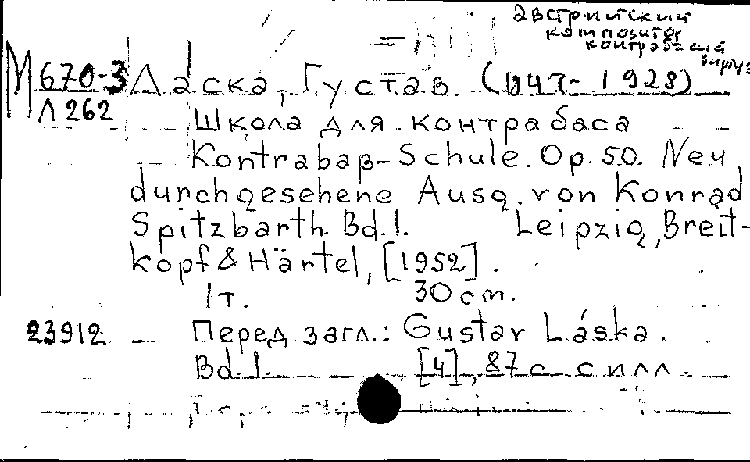 австрийский
композитор
контрабасист
вирту
М 670-3 Ласка, Густав. (1847-1928)
Л 262
Школа для контрабаса
Kontrabaß-Schule. Op. 50. Neu
durchgesehene Ausg. von Konrad
Spitzbarth. Bd. 1. Leipzig, Breit-
kopf & Härtel, [1952].
1 т. 30 cm.
23912 Перед загл.: Gustav Láska.
Bd. 1. [4], 87 с. с илл.